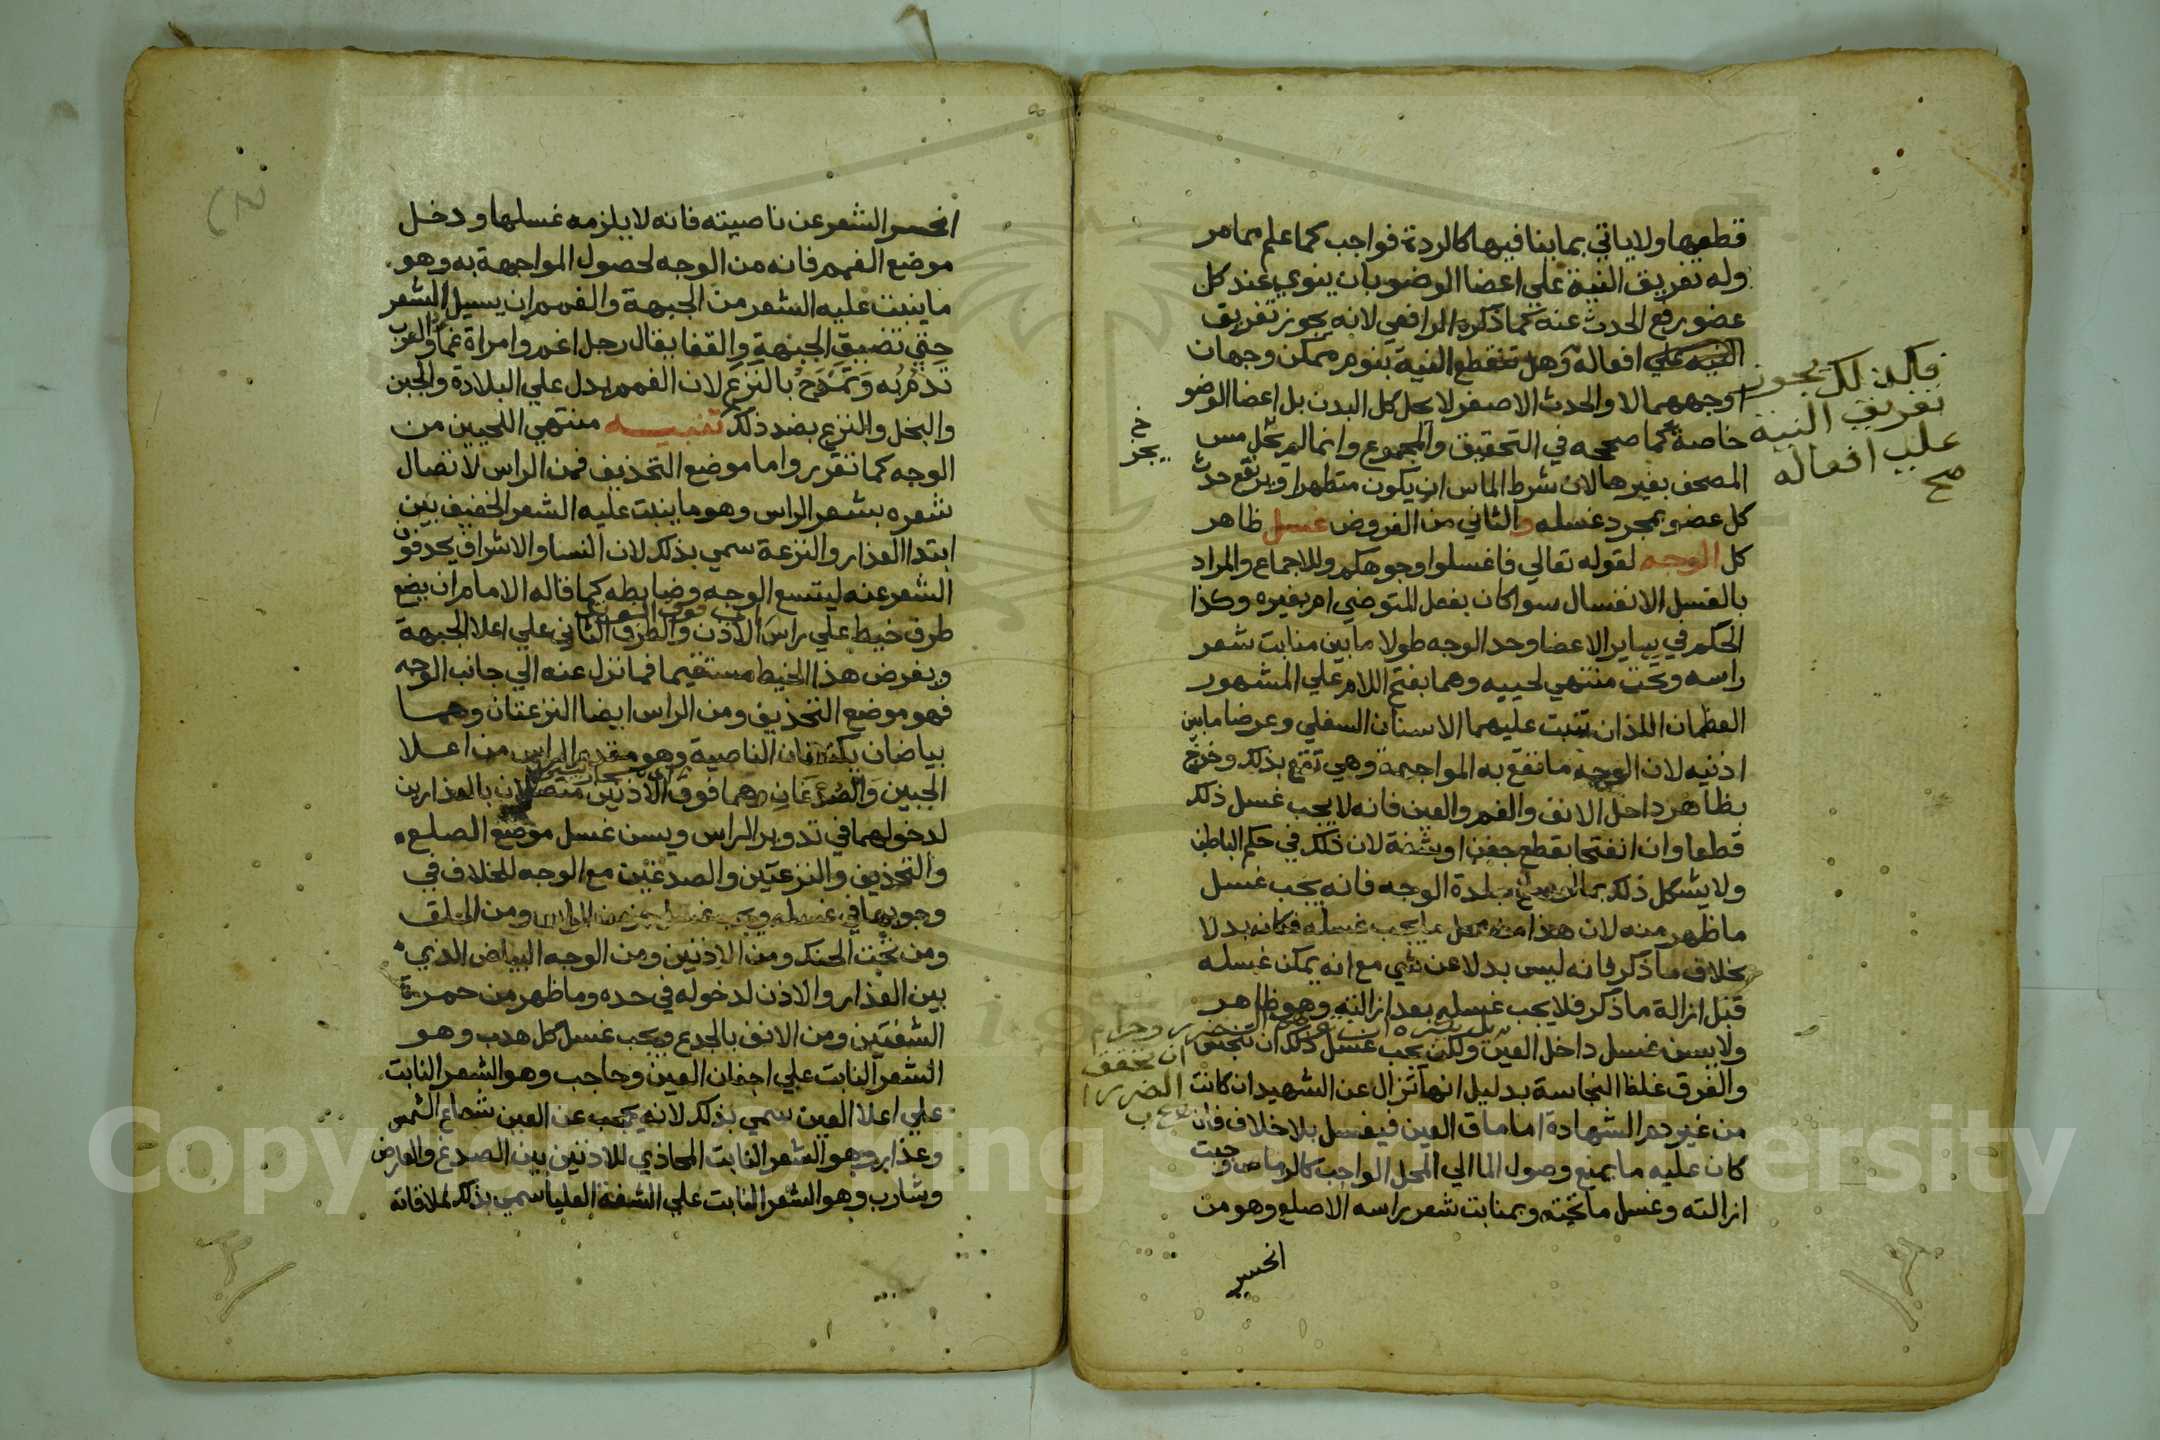 قطعها ولا ياتي بما ينافيها كالردة فواجب كما علم مما مر
وله تفريق النية علي اعضا الوضو بان ينوي عند كل
عضو رفع الحدث عنه كما ذكره الرافعي لانه يجوز تفريق
النية علي افعاله وهل تنقطع النية بنوم ممكن وجهان
اوجههما لا والحدث الاصغر لا يحل كل البدن بل اعضا الوضو
خاصة كما صححه في التحقيق والمجموع وانما لم يحل مس
المصحف بغيرها لان شرط الماس ان يكون متطهرا ويرتفع حدث
كل عضو بمجرد غسله والثاني من الفروض غسل ظاهر
كل الوجه لقوله تعالي فاغسلوا وجوهكم وللاجماع والمراد
بالغسل الانغسال سوا كان بفعل المتوضي ام بغيره وكذا
الحكم في ساير الاعضا وحد الوجه طولا ما بين منابت شعر
راسه وتحت منتهي لحييه وهما بفتح اللام علي المشهور
العظمان اللذان تنبت عليهما الاسنان السفلي وعرضا ما بين
اذنيه لان الوجه ما تقع به المواجهة وهي تقع بذلك وخرج
بظاهر داخل الانف والفم والعين فانه لا يجب غسل ذلك
قطعا وان انفتحا بقطع جفن او شفة لان ذلك في حكم الباطن
ولا يشكل ذلك بما لو سلخ جلدة الوجه فانه يجب غسل
ما ظهر منه لان هذا من محل ما يجب غسله فكانه بدلا
بخلاف ما ذكر فانه ليس بدلا عن شي مع انه يمكن غسله
قبل ازالة ما ذكر فلا يجب غسله بعد ازالته وهو ظاهر
ولا يسن غسل داخل العين ولكن يجب غسل ذلك ان تنجس
والفرق غلظ النجاسة بدليل انها تزال عن الشهيد ان كانت
من غير دم الشهادة اما ماق العين فيغسل بلا خلاف فان
كان عليه ما يمنع وصول الما الي المحل الواجب كالرماص وجبت
ازالته وغسل ما تحته وبمنابت شعر راسه الاصلع وهو من
انحسر
فكذلك يجوز
تفريق النية
علي افعاله
صح
خ
يجز
بل يكره ان
ضرر وحرام
ان تحقق
الضرر
انحسر الشعر عن ناصيته فانه لا يلزمه غسلها ودخل
موضع الغمم فانه من الوجه لحصول المواجهة به وهو
ما ينبت عليه الشعر من الجبهة والغمم ان يسيل الشعر
حتي تضيق الجبهة والقفا يقال رجل اغم وامراة غما والعرب
تذم به وتمدح بالنزع لان الغمم يدل علي البلادة والجبن
والبخل والنزع بضد ذلك تنبيه منتهي اللحيين من
الوجه كما تقرر واما موضع التحذيف فمن الراس لاتصال
شعره بشعر الراس وهو ما ينبت عليه الشعر الخفيف بين
ابتدا العذار والنزعة سمي بذلك لان النسا والاشراف يحذفون
الشعر عنه ليتسع الوجه وضابطه كما قاله الامام ان يضع
طرف خيط علي راس الاذن والطرف الثاني علي اعلا الجبهة
ويفرض هذا الخيط مستقيما فما نزل عنه الي جانب الوجه
فهو موضع التحذيف ومن الراس ايضا النزعتان وهما
بياضان يكتنفان الناصية وهو مقدم الراس من اعلا
الجبين والصدغان وهما فوق الاذنين متصلان بالعذارين
لدخولهما في تدوير الراس ويسن غسل موضع الصلع
والتحذيف والنزعتين والصدغين مع الوجه للخلاف في
وجوبها في غسله ويجب غسل جزء من الراس ومن الحلق
ومن تحت الحنك ومن الاذنين ومن الوجه البياض الذي
بين العذار والاذن لدخوله في حده وما ظهر من حمرة
الشفتين ومن الانف بالجدع ويجب غسل كل هدب وهو
الشعر النابت علي اجفان العين وحاجب وهو الشعر النابت
علي اعلا العين سمي بذلك لانه يحجب عن العين شعاع الشمس
وعذار وهو الشعر النابت المحاذي للاذنين بين الصدغ والعارض
وشارب وهو الشعر النابت علي الشفة العليا سمي بذلك لملاقاته
Copyright © King Saud University